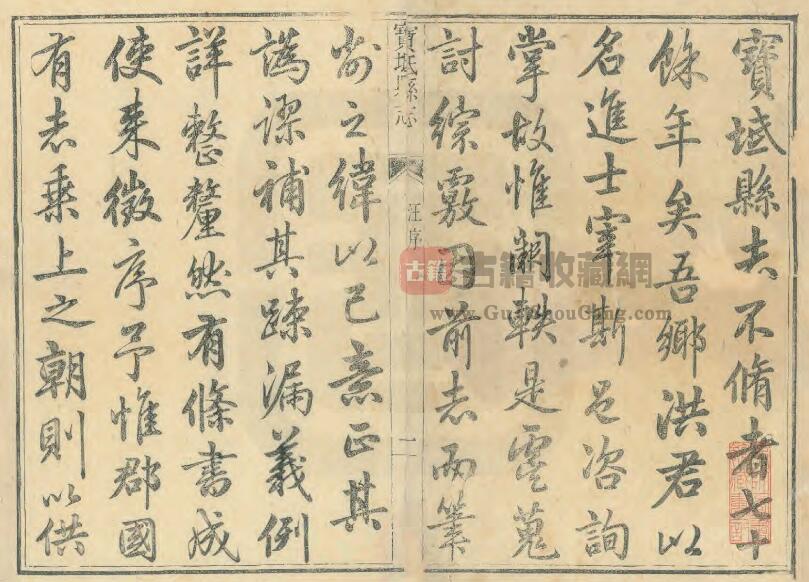 寶坻縣志不脩者七十
餘年矣吾鄉洪君以
名進士宰斯邑咨詢
掌故惟闕軼是虞蒐
討綜覈因前志而筆
寶坻縣志
汪序
一
削之緯以己意正其
譌謬補其踈漏義例
詳整釐然有條書成
使来徵序予惟郡國
有志乘上之朝則以供
古籍
古籍收藏網
www.GuJiShouCang.com